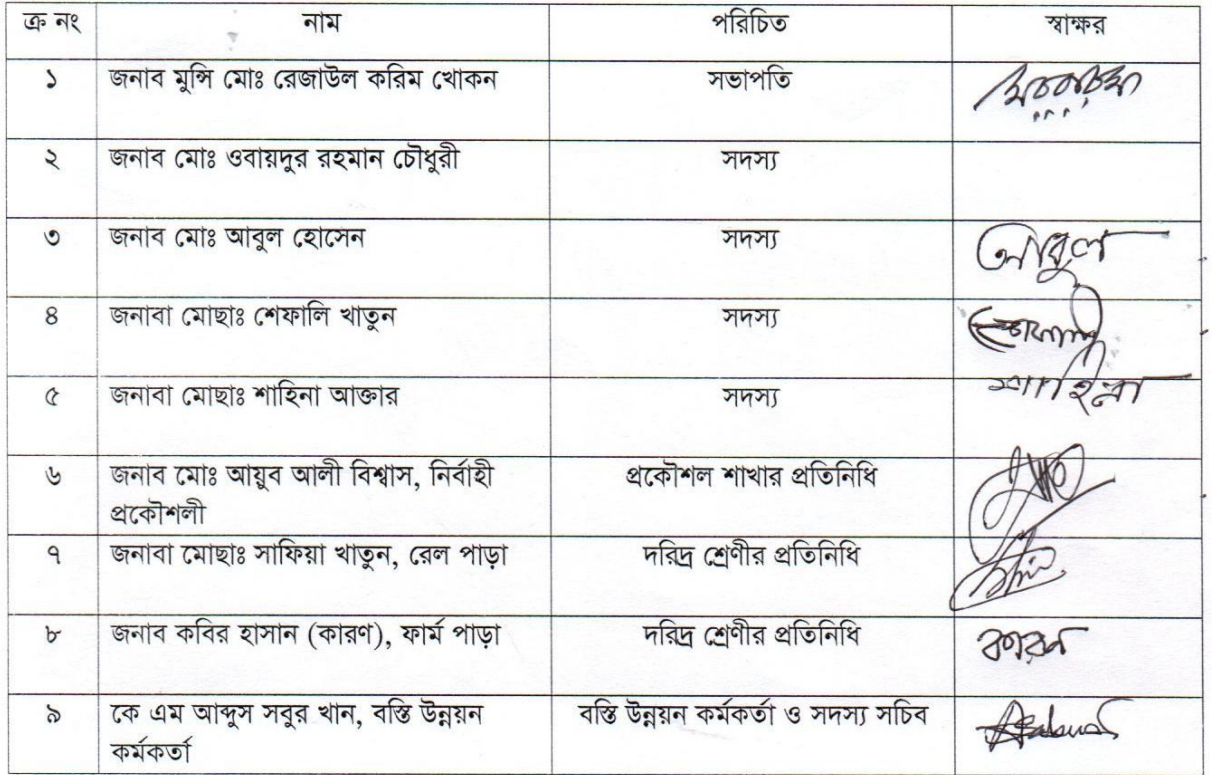 ক্র নং নাম পরিচিত স্বাক্ষর
১ জনাব মুন্সি মোঃ রেজাউল করিম খোকন সভাপতি
২ জনাব মোঃ ওবায়দুর রহমান চৌধুরী সদস্য
৩ জনাব মোঃ আবুল হোসেন সদস্য আবুল
৪ জনাবা মোছাঃ শেফালি খাতুন সদস্য
৫ জনাবা মোছাঃ শাহিনা আক্তার সদস্য শাহিনা
৬ জনাব মোঃ আয়ুব আলী বিশ্বাস, নির্বাহী প্রকৌশল শাখার প্রতিনিধি
প্রকৌশলী
৭ জনাবা মোছাঃ সাফিয়া খাতুন, রেল পাড়া দরিদ্র শ্রেণীর প্রতিনিধি
৮ জনাব কবির হাসান (কারণ), ফার্ম পাড়া দরিদ্র শ্রেণীর প্রতিনিধি কারন
৯ কে এম আব্দুস সবুর খান, বস্তি উন্নয়ন বস্তি উন্নয়ন কর্মকর্তা ও সদস্য সচিব
কর্মকর্তা